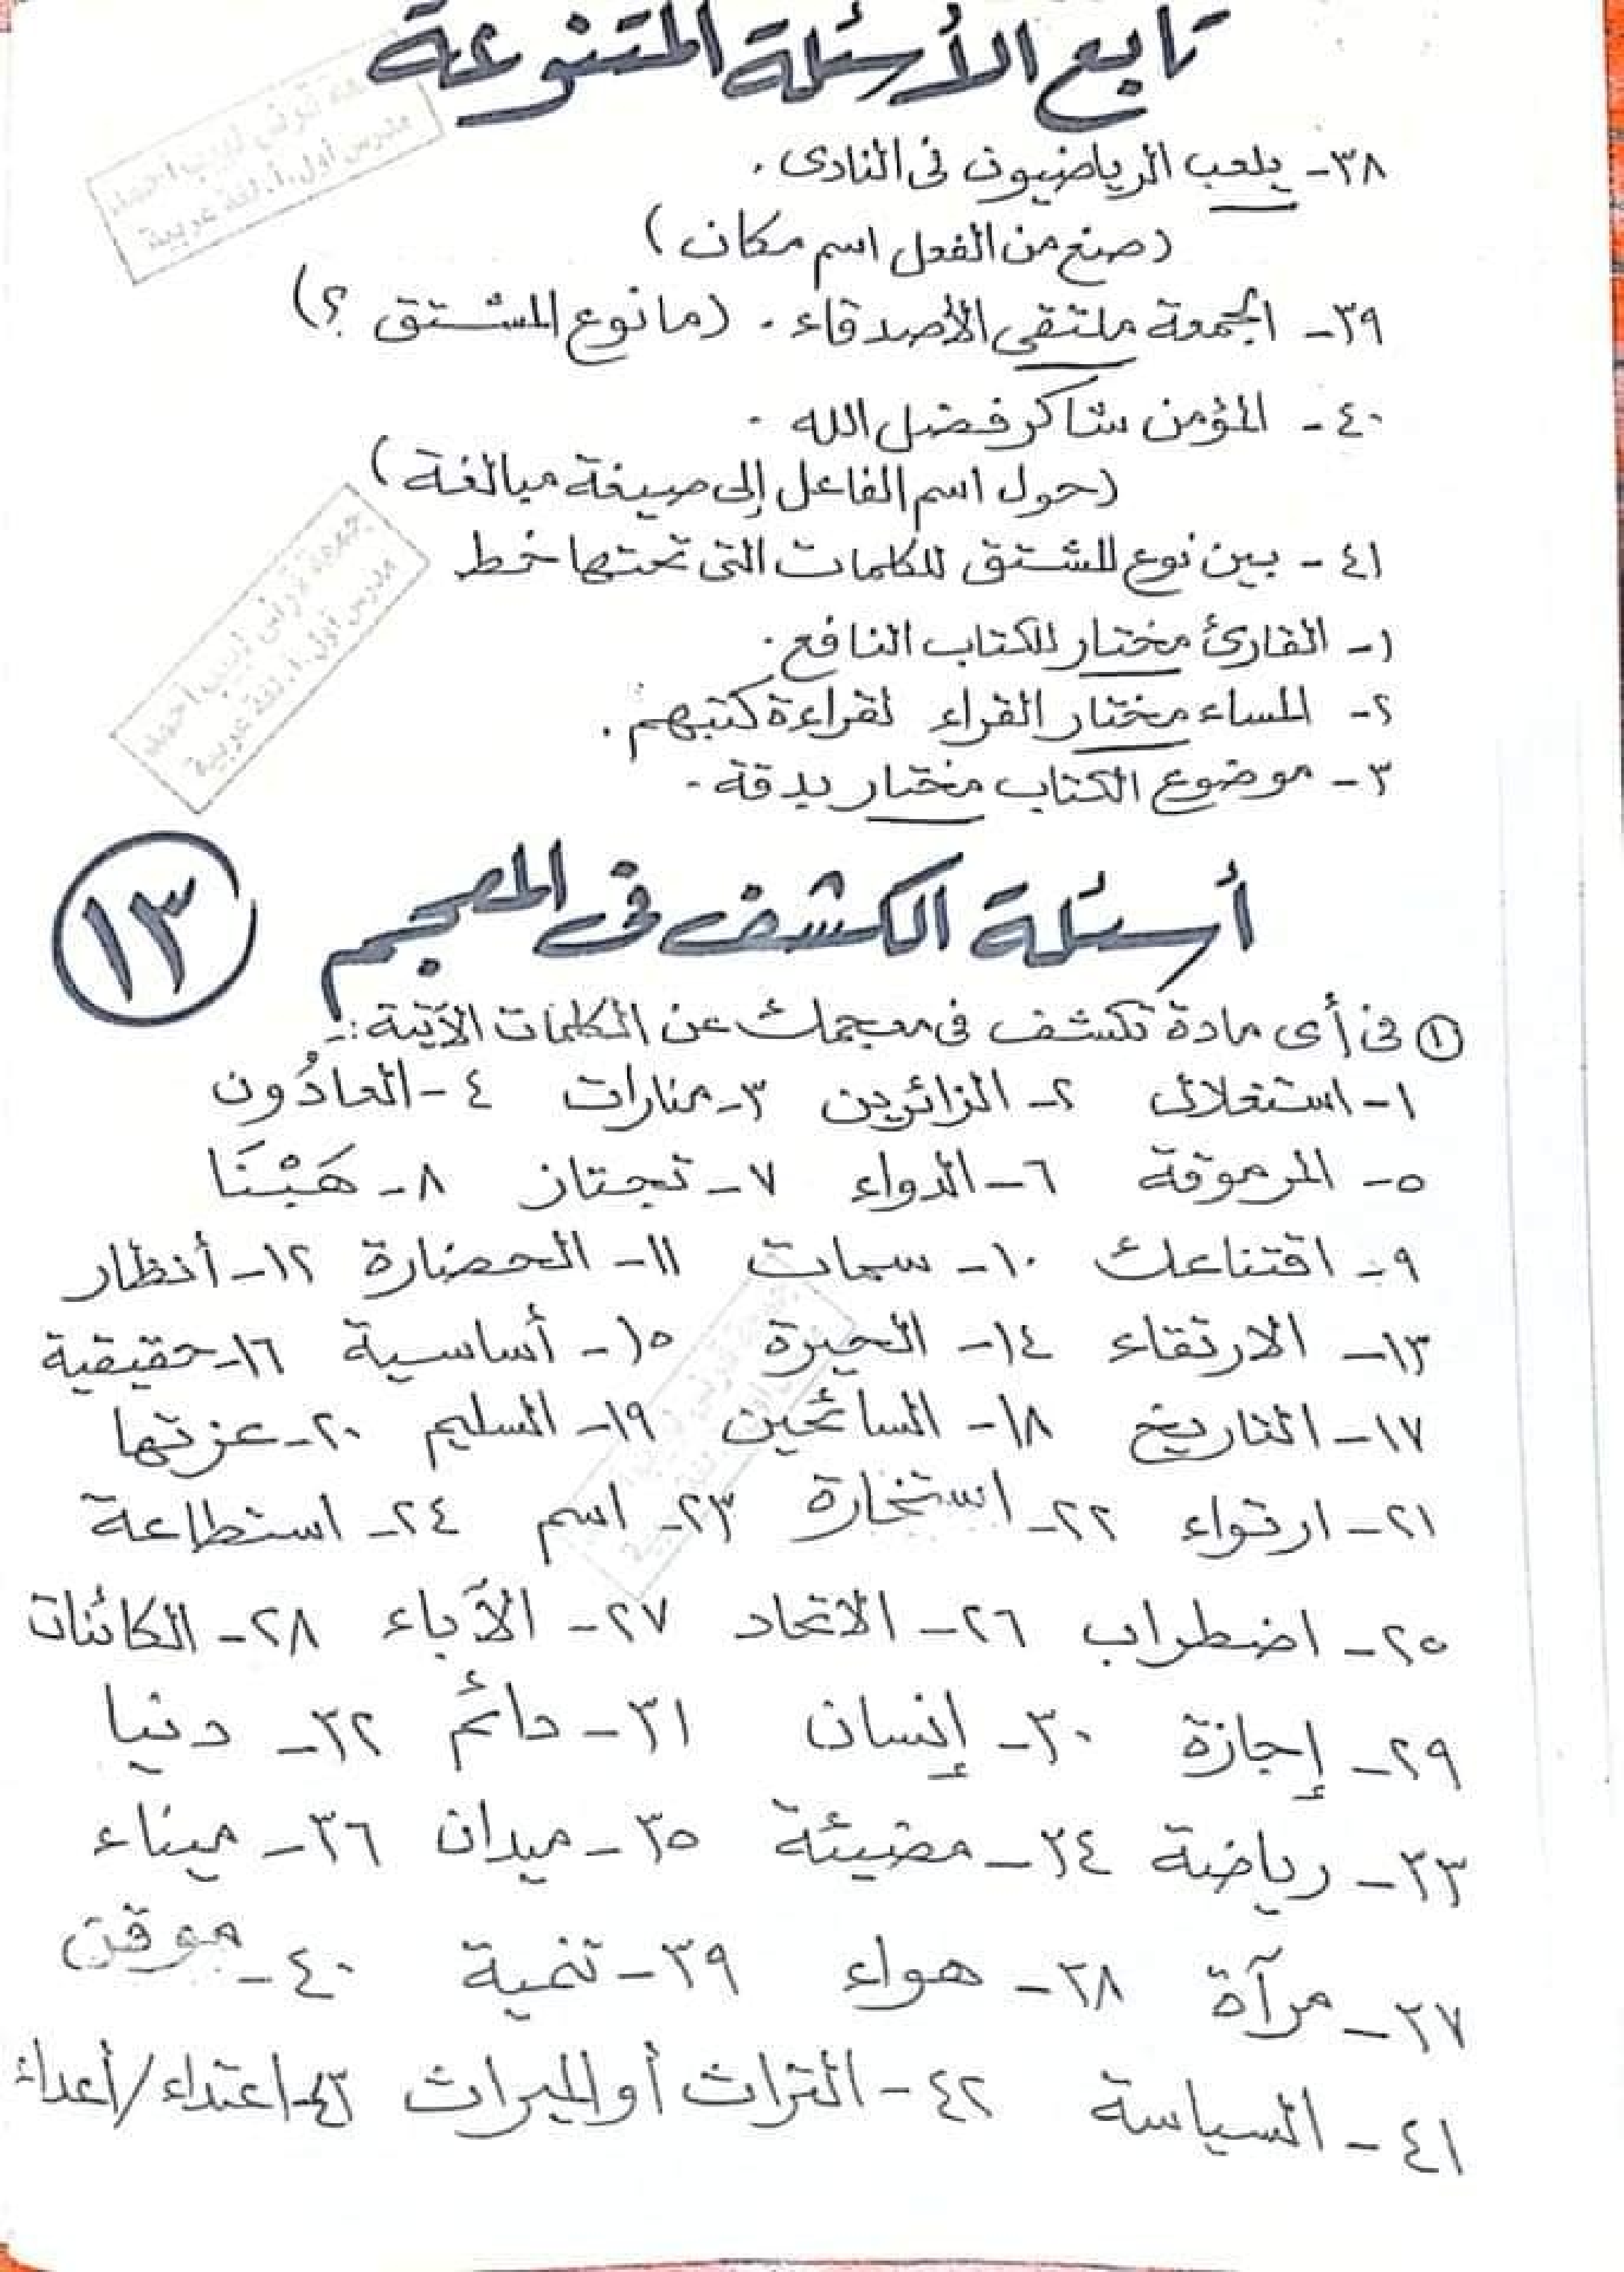 تابع الأسئلة المتنوعة
٣٨- يلعب الرياضيون فى النادى .
(صغ من الفعل اسم مكان)
٣٩- الجمعة ملتقى الأصدقاء . (ما نوع المشتق ؟)
٤٠- المؤمن شاكر فضل الله .
(حول اسم الفاعل إلى صيغة مبالغة)
٤١- بين نوع المشتق للكلمات التى تحتها خط
١- القارئ مختار للكتاب النافع.
٢- المساء مختار القراء لقراءة كتبهم.
٣- موضوع الكتاب مختار بدقة.
أسئلة الكشف فى المعجم
١٣
١ فى أى مادة تكشف فى معجمك عن الكلمات الآتية :-
١- استغلال ٢- الزائرين ٣- منارات ٤- العادُون
٥- المرموقة ٦- الدواء ٧- تجتاز ٨- هَبْنَا
٩- اقتناعك ١٠- سمات ١١- الحضارة ١٢- أنظار
١٣- الارتقاء ١٤- الحيرة ١٥- أساسية ١٦- حقيقية
١٧- التاريخ ١٨- السائحين ١٩- السليم ٢٠- عزتها
٢١- ارتواء ٢٢- استخارة ٢٣- اسم ٢٤- استطاعة
٢٥- اضطراب ٢٦- الاتحاد ٢٧- الآباء ٢٨- الكائنات
٢٩- إجازة ٣٠- إنسان ٣١- دائم ٣٢- دنيا
٣٣- رياضة ٣٤- مضيئة ٣٥- ميدان ٣٦- ميناء
٣٧- مرآة ٣٨- هواء ٣٩- تنمية ٤٠- موقن
٤١- السياسة ٤٢- التراث أو الميراث ٤٣- اعتداء/أعداء
مدرس أول أ. لغة عربية
مدرس أول أ. لغة عربية